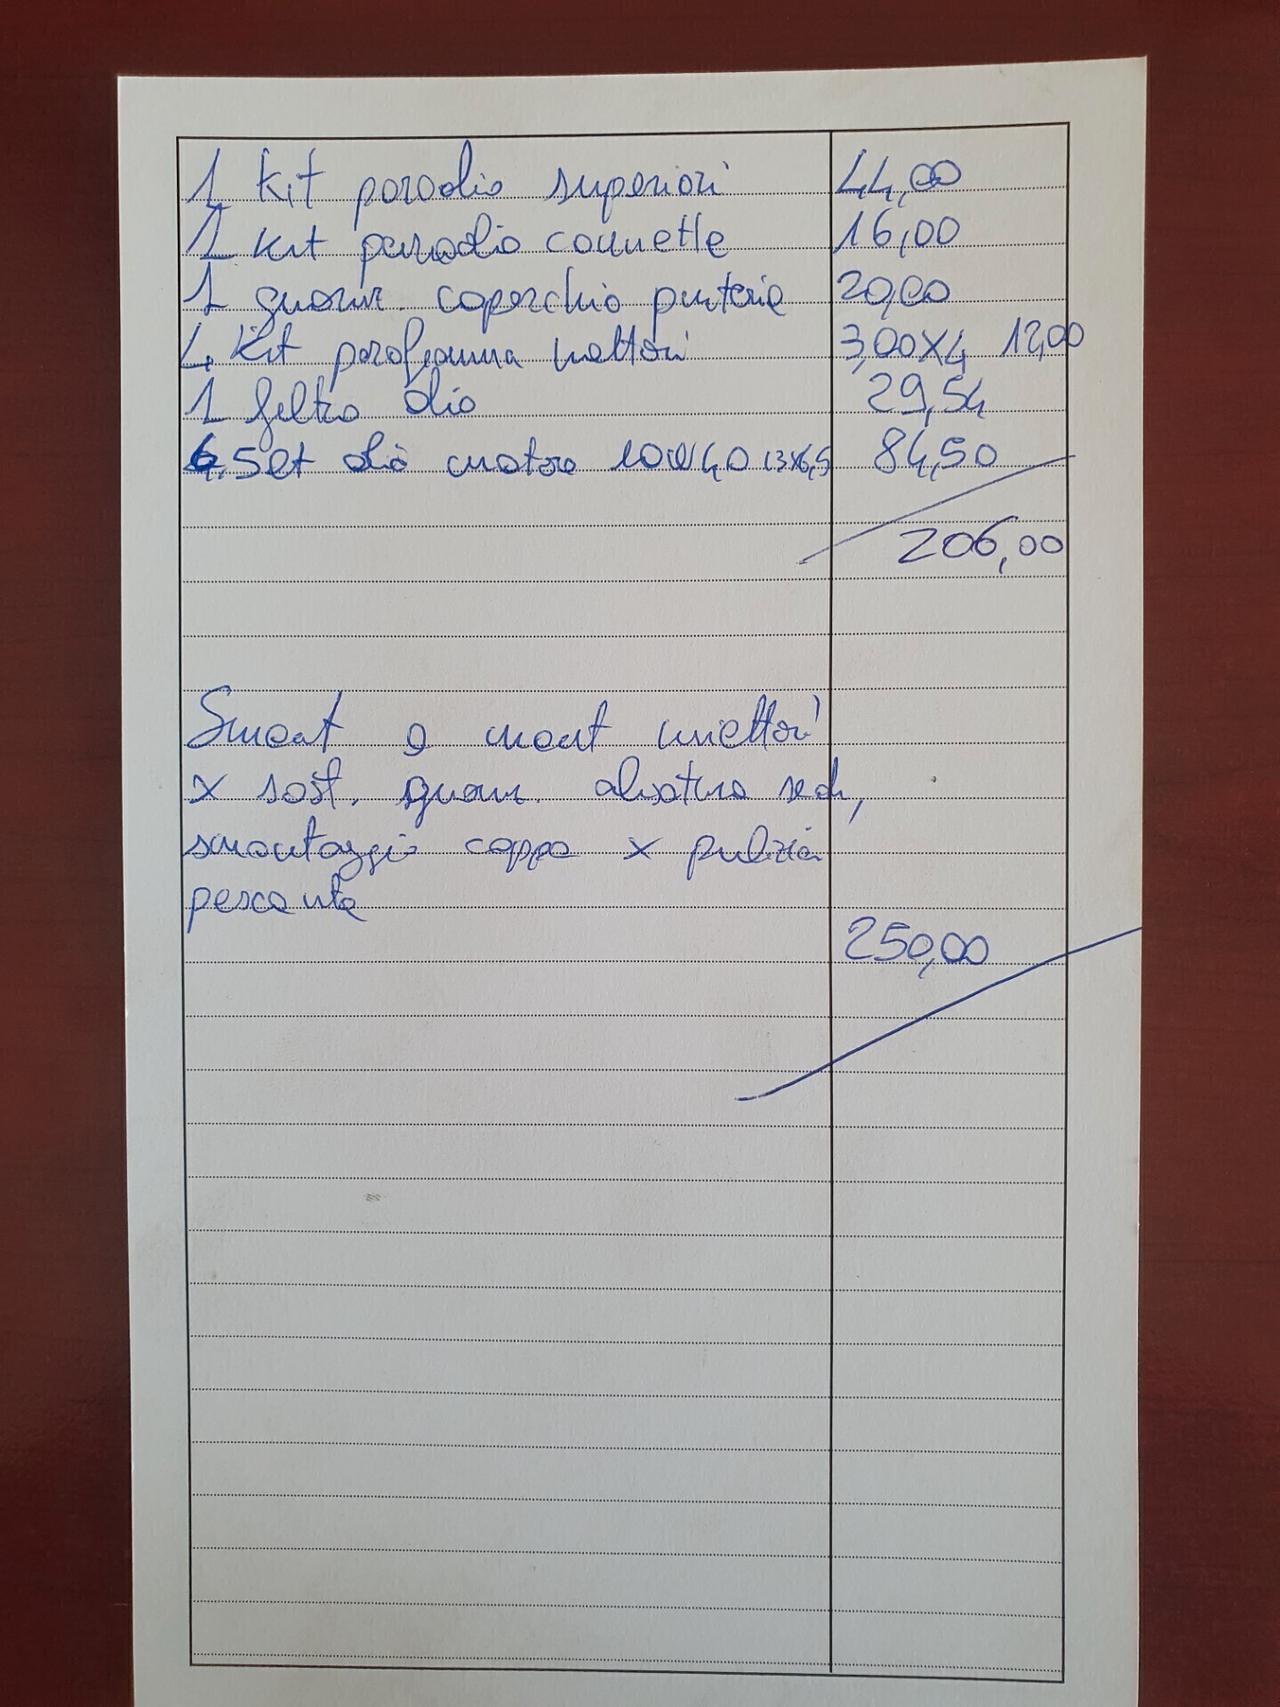 1 Kit paraolio superiori 44,00
1 Kit paraolio cannette 16,00
1 guarniz. coperchio punterie 20,00
4 Kit parafiamma iniettori 3,00x4 12,00
1 filtro olio 29,54
6,5 lt olio motore 10W40 13x6,5 84,50
206,00
Smont e mont iniettori
x sost. guarn. alvatura sedi,
smontaggio coppa x pulizia
pescante
250,00